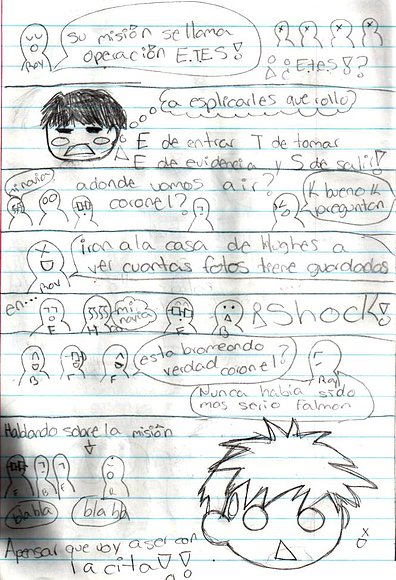 su misión se llama
operación E.T.E.S!
Roy
¿¡E.T.E.S!?
a explicarles que rollo
E de entrar T de tomar
E de evidencia y S de salir!
a donde vamos a ir?
coronel?
K bueno K
preguntan
iran a la casa de Hughes a
ver cuantas fotos tiene guardadas
Roy
en...
mi
F
H
F
B
¡Shock!
esta bromeando
verdad coronel?
B
F
F
Roy
Nunca había sido
mas serio falmon
Hablando sobre la misión
F
B
F
R
bla bla
bla bla
Apensar que voy a ser con
la cita!!